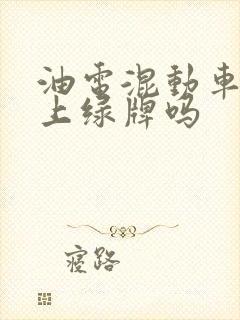 油電混動車
上绿牌吗
寝路